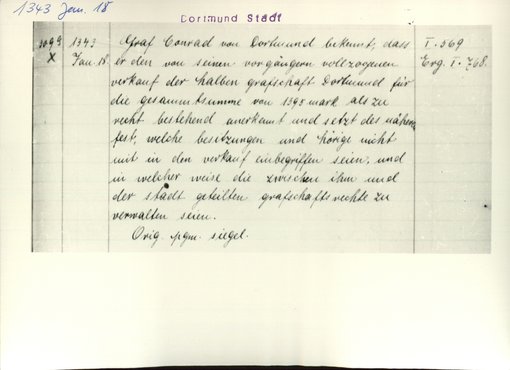 1343 Jan. 18
Dortmund Stadt
1343
Jan. 18.
X
Graf Conrad von Dortmund bekennt, dass
er den von seinen vorgängern vollzogenen
verkauf der halben grafschaft Dortmund für
die gesammtsumme von 1395 mark als zu
recht bestehend anerkannt und setzt des nähern
fest, welche besitzungen und hörige nicht
mit in den verkauf einbegriffen seien, und
in welcher weise die zwischen ihm und
der stadt geteilten grafschaftsrechte zu
verwalten seien.
Orig. pgm. siegel.
I. 569
Erg. I. 768.